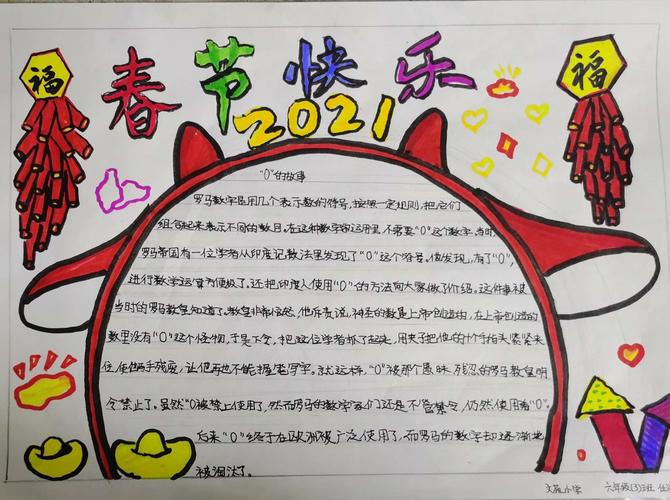 福
春节快乐
福
2021
"0"的故事
罗马数字是用几个表示数的符号,按照一定规则,把它们
组合起来表示不同的数目。在这种数字的运用里,不需要"0"这个数字。当时,
罗马帝国有一位学者从印度记数法里发现了"0"这个符号。他发现,有了"0",
进行数学运算方便极了。还把印度人使用"0"的方法向大家做了介绍。这件事被
当时的罗马教皇知道了。教皇非常恼怒,他斥责说,神圣的数是上帝创造的,在上帝创造的
数里没有"0"这个怪物,于是下令,把这位学者抓了起来,用夹子把他的十个手指头紧紧夹
住,使他两手残废,让他再也不能握笔写字。就这样,"0"被那个愚昧、残忍的罗马教皇明
令禁止了。虽然"0被禁止使用了,然而罗马的数学家们还是不管禁令,仍然使用着"0"。
后来"0"终于在欧洲被广泛使用了,而罗马的数字却逐渐地
被淘汰了。
小学
六年级(3)班